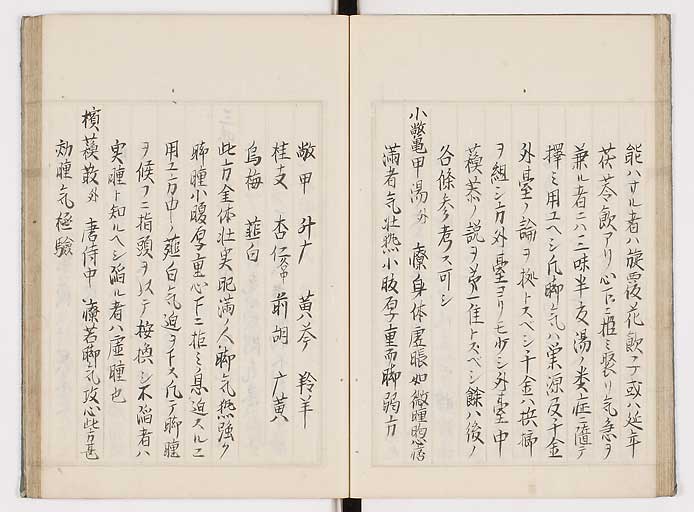 能ハサル者ハ旋覆花飲ヲテ或ハ延年
茯苓飲アリ心下ニ拒ミ緊リ気急ヲ
兼ル者ニハ三味半夏湯ノ類症ニ随テ
擇ミ用ユヘシ凡脚気ハ巣源及千金
外臺ノ論ヲ拠トスベシ千金ハ
ヲ組シ方外臺ヨリモ少シ外臺中
蘇恭ノ説ヲ第一隹トスベシ餘ハ後ノ
各條参考ス可シ
小鼈甲湯 外 療身体虚脹如微腫胸心痞
満者気壮熱小腹厚重而脚弱方
鼈甲 升麻 黄芩 羚羊
桂支 杏仁 前胡 广黄
烏梅 薤白
此方全体壮実肥満ノ人脚気熱強ク
脚腫小腹厚重心下ニ拒ミ息迫スルニ
用ユ方中ノ薤白気迫ヲ下ス凡テ脚腫
ヲ候フニ指頭ヲ以テ按撫シ不陷者ハ
実腫ト知ルヘシ陷ル者ハ虚腫也
檳榔散 外 唐侍中 療若脚気攻心此方甚
効腫気極驗